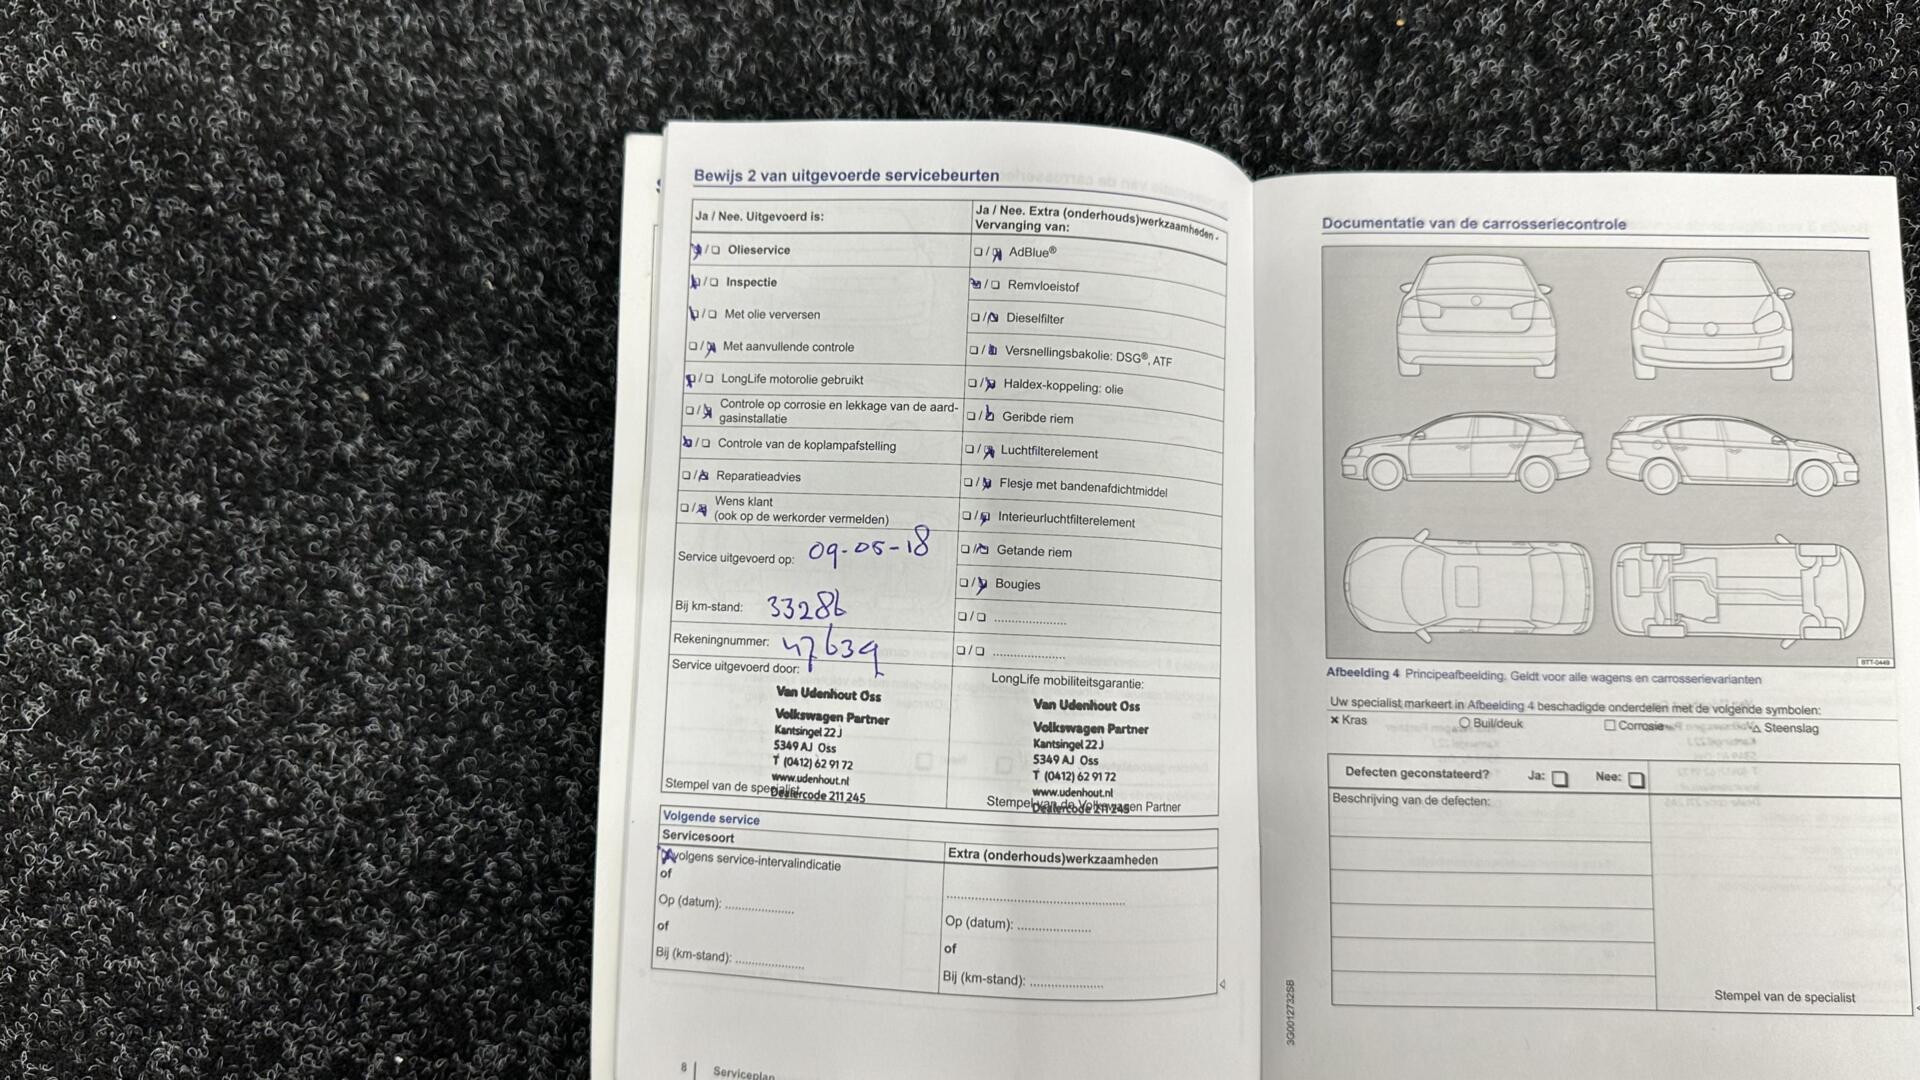 Bewijs 2 van uitgevoerde servicebeurten
Ja / Nee. Uitgevoerd is:
Olieservice
Inspectie
Met olie verversen
Met aanvullende controle
LongLife motorolie gebruikt
Controle op corrosie en lekkage van de aard-
gasinstallatie
Controle van de koplampafstelling
Reparatieadvies
Wens klant
(ook op de werkorder vermelden)
Service uitgevoerd op: 09-05-18
Bij km-stand: 33286
Rekeningnummer: 47639
Service uitgevoerd door:
Van Udenhout Oss
Volkswagen Partner
Kantsingel 22 J
5349 AJ Oss
T (0412) 62 91 72
www.udenhout.nl
Dealercode 211 245
Stempel van de specialist
Ja / Nee. Extra (onderhouds)werkzaamheden -
Vervanging van:
AdBlue®
Remvloeistof
Dieselfilter
Versnellingsbakolie: DSG®, ATF
Haldex-koppeling: olie
Geribde riem
Luchtfilterelement
Flesje met bandenafdichtmiddel
Interieurluchtfilterelement
Getande riem
Bougies
LongLife mobiliteitsgarantie:
Van Udenhout Oss
Volkswagen Partner
Kantsingel 22 J
5349 AJ Oss
T (0412) 62 91 72
www.udenhout.nl
Dealercode 211 245
Stempel van de Volkswagen Partner
Volgende service
Servicesoort
volgens service-intervalindicatie
of
Op (datum): ....................
of
Bij (km-stand): ....................
Extra (onderhouds)werkzaamheden
Op (datum): ....................
of
Bij (km-stand): ....................
8 | Serviceplan
Documentatie van de carrosseriecontrole
BTT-0449
Afbeelding 4 Principeafbeelding. Geldt voor alle wagens en carrosserievarianten
Uw specialist markeert in Afbeelding 4 beschadigde onderdelen met de volgende symbolen:
× Kras ○ Buil/deuk □ Corrosie △ Steenslag
Defecten geconstateerd? Ja: □ Nee: □
Beschrijving van de defecten:
Stempel van de specialist
3G0012732SB